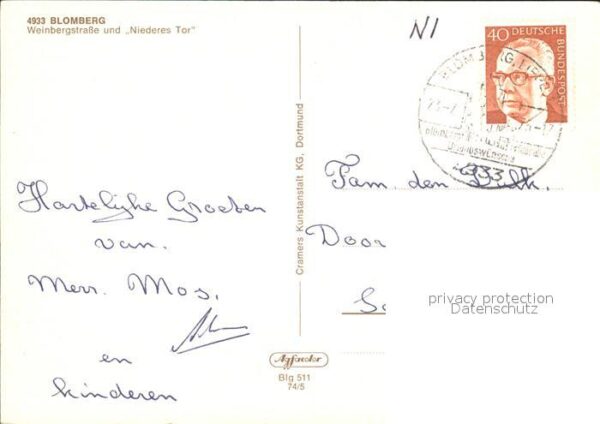 4933 BLOMBERG
Weinbergstraße und „Niederes Tor"
N1
40
DEUTSCHE
BUNDESPOST
4933
Hartelijke Groeten
van.
Merr. Mos.
en
kinderen
Cramers Kunstanstalt KG, Dortmund
Agfacolor
Blg 511
74/5
Fam. den
Door
privacy protection
Datenschutz